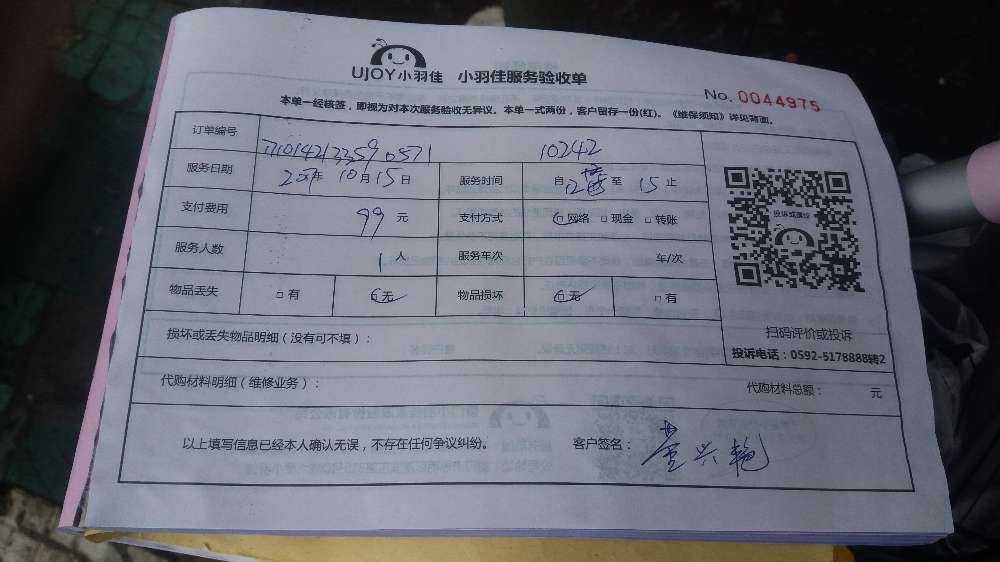 UJOY小羽佳 小羽佳服务验收单
No. 0044975
本单一经核签，即视为对本次服务验收无异议。本单一式两份，客户留存一份(红)。《维保须知》详见背面。
订单编号 10242
服务日期 年 10月15日 服务时间 自 12 至 15 止
支付费用 99 元 支付方式 网络 □ 现金 □ 转账
服务人数 1 人 服务车次 车/次
物品丢失 □ 有 无 物品损坏 无 □ 有
投诉或建议
扫码评价或投诉
投诉电话：0592-5178888转2
损坏或丢失物品明细（没有可不填）：
代购材料明细（维修业务）： 代购材料总额： 元
以上填写信息已经本人确认无误，不存在任何争议纠纷。 客户签名：